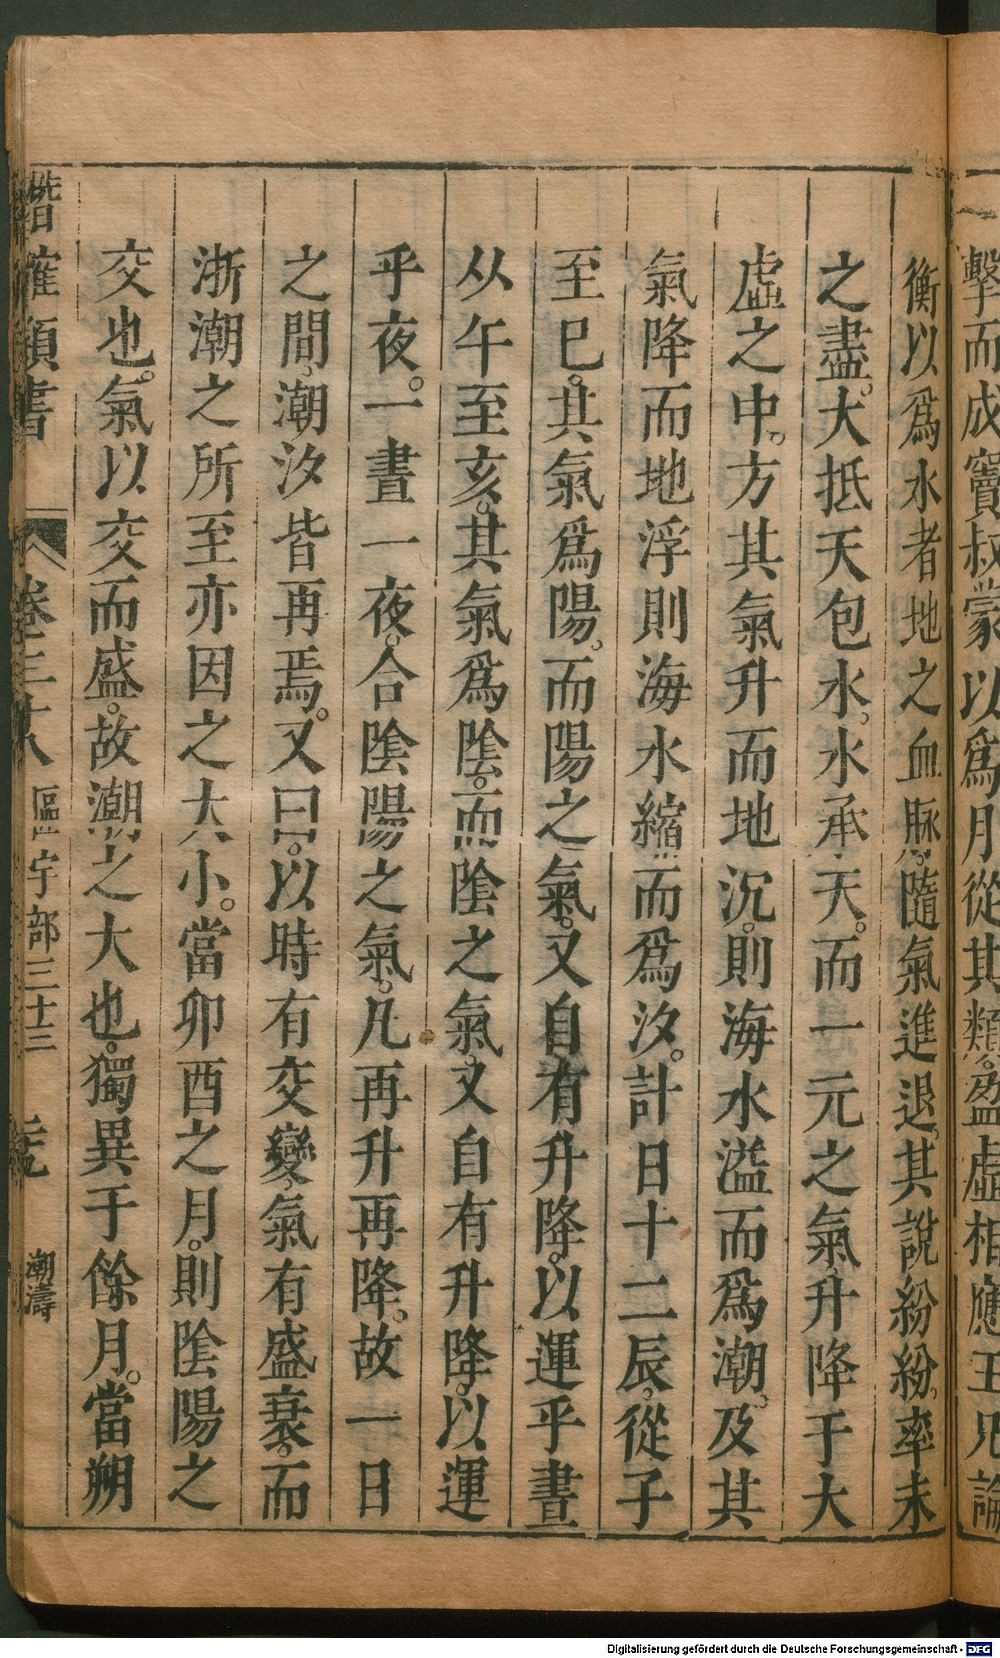 擊而成竇叔蒙以爲月從其類盈虛相應王充論
衡以爲水者地之血脉。隨氣進退。其說紛紛。率未
之盡。大抵天包水。水承天。而一元之氣。升降于大
虛之中。方其氣升而地沉。則海水溢而爲潮。及其
氣降而地浮則海水縮而爲汐。計日十二辰。從子
至巳。其氣爲陽。而陽之氣。又自有升降。以運乎晝
从午至亥。其氣爲陰。而陰之氣。又自有升降。以運
乎夜。一晝一夜。合陰陽之氣。凡再升再降。故一日
之間。潮汐皆再焉。又曰。以時有交變。氣有盛衰。而
浙潮之所至亦因之大小。當卯酉之月。則陰陽之
交也。氣以交而盛。故潮之大也。獨異于餘月。當朔
類書 卷三十八 區宇部三十三 潮濤
Digitalisierung gefördert durch die Deutsche Forschungsgemeinschaft - DFG